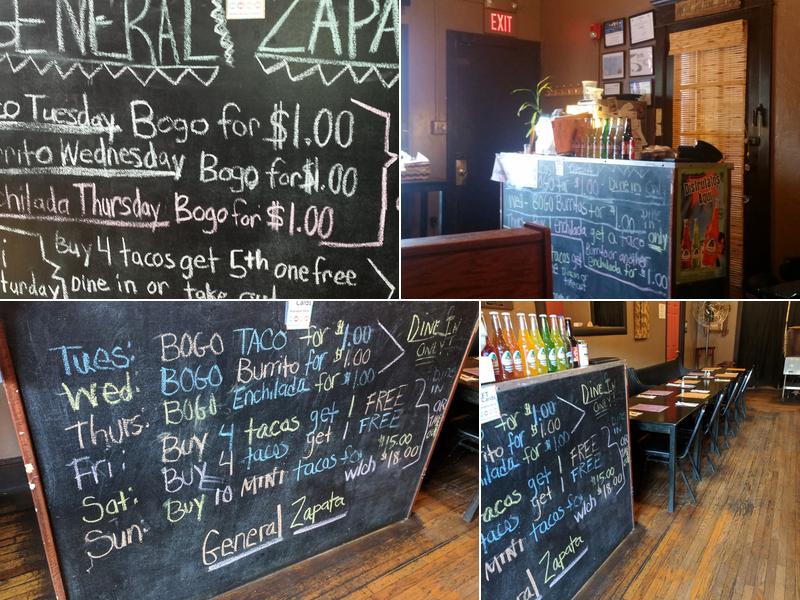 GENERAL ZAPA
co Tuesday Bogo for $1.00
rrito Wednesday Bogo for $1.00
chilada Thursday Bogo for $1.00
Buy 4 tacos get 5th one free
turday Dine in or take out
EXIT
BOGO for $1.00 Dine in Only
Wed- BOGO Burritos for $1.00
Enchilada get a taco only
Burrito or another
Enchilada for $1.00
Disfrutalos
Aqui
Tues: BOGO TACO for $1.00
Wed: BOGO Burrito for $1.00
Thurs: BOGO Enchilada for $1.00
Fri: BUY 4 tacos get 1 FREE
Sat: BUY 4 tacos get 1 FREE
Sun: Buy 10 MINI tacos for $15.00
w/ch $18.00
DINE IN
ONLY!
General Zapata
for $1.00
ito for $1.00
ilada for $1.00
acos get 1 FREE
tacos get 1 FREE
MINI tacos for $15.00
w/ch $18.00
DINE IN
ONLY!
ral Zapata